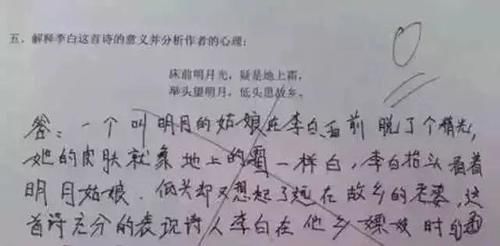 五、解释李白这首诗的意义并分析作者的心理:
0
床前明月光,疑是地上霜,
举头望明月,低头思故乡。
答:一个叫明月的姑娘在李白面前脱了个精光,
她的皮肤就象地上的霜一样白,李白抬头看着
明月姑娘.低头却又想起了远在故乡的老婆,这
首诗充分的表现诗人李白在他乡嫖妓时的